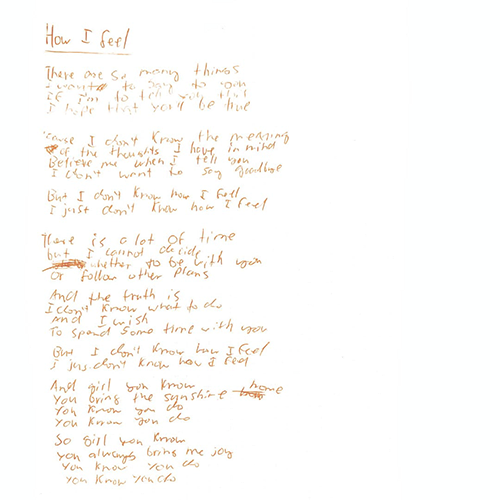 How I feel
There are so many things
I want to say to you
If I'm to tell you this
I hope that you'll be true
Cause I don't know the meaning
of the thoughts I have in mind
Believe me when I tell you
I don't want to say goodbye
But I don't know how I feel
I just don't know how I feel
There is a lot of time
but I cannot decide
whether to be with you
or follow other plans
And the truth is
I don't know what to do
And I wish
To spend some time with you
But I don't know how I feel
I jus don't know how I feel
And girl you know
You bring the sunshine home
You know you do
You know you do
So girl you know
you always bring me joy
You know you do
You know you do